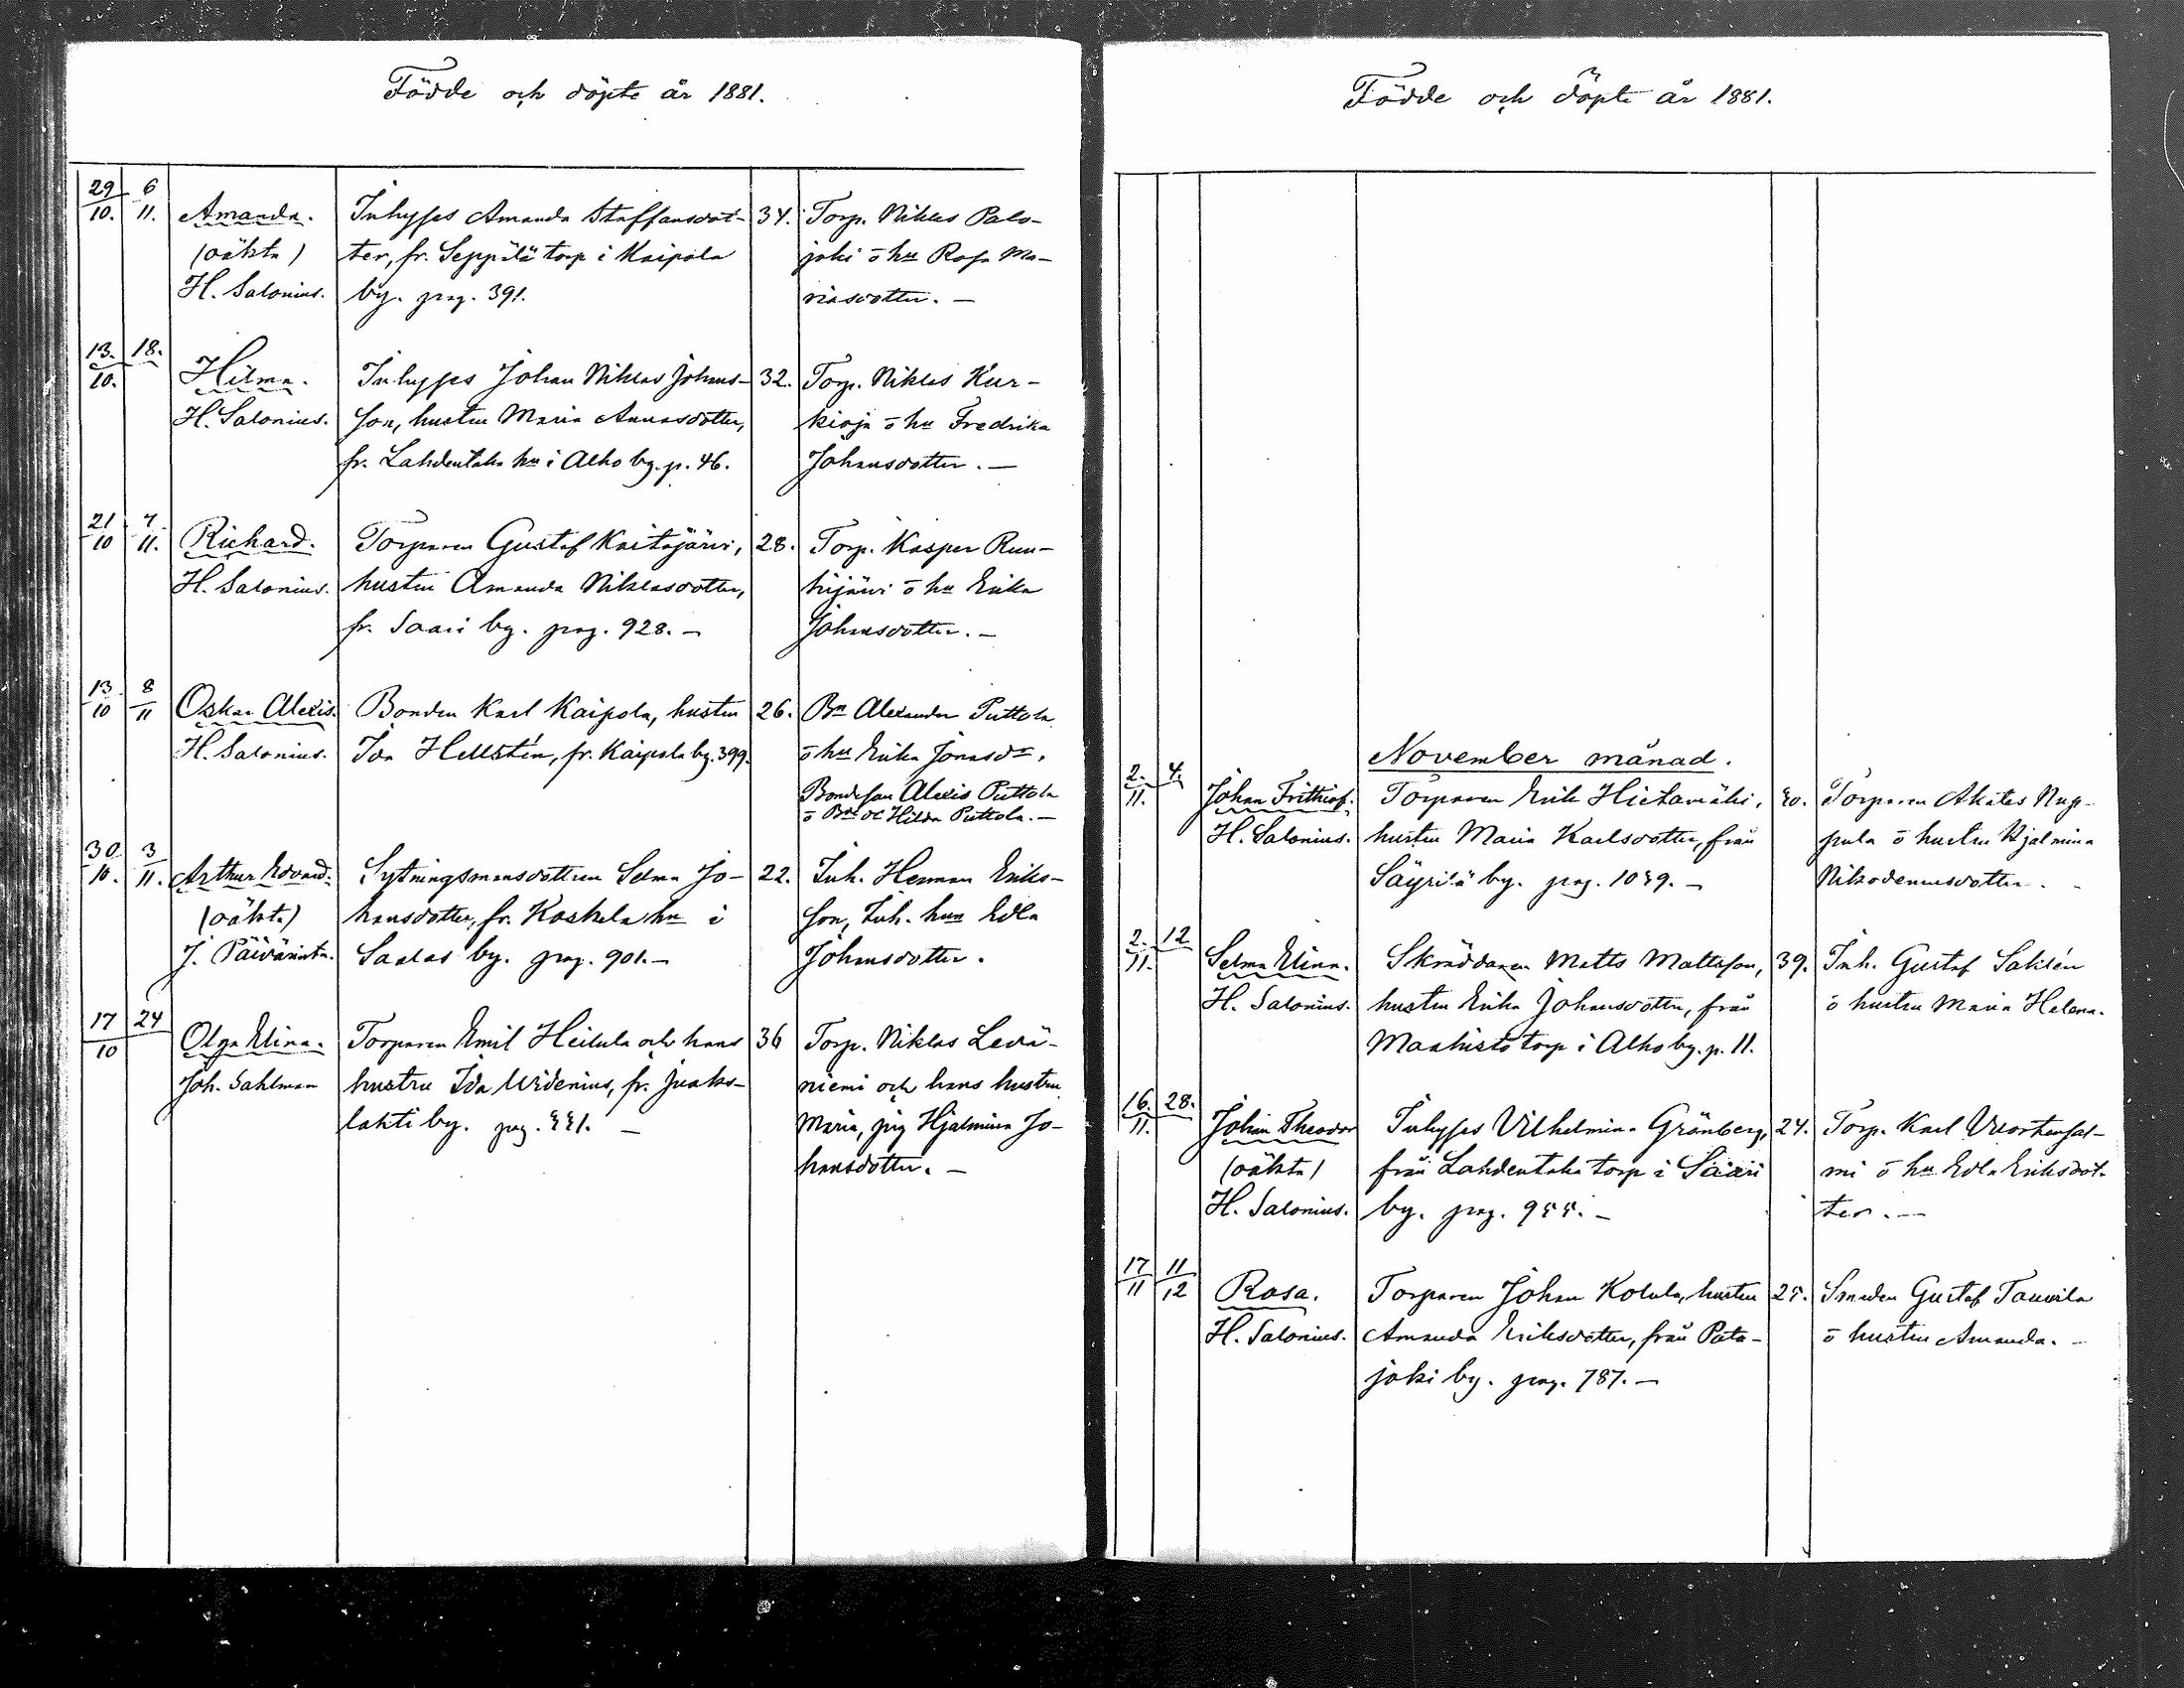 Födde och döpte år 1881.
29/10. 6/11. Amanda. Inhyses Amanda Staffansdot- 34. Torp. Niklas Palo-
(oäkta) ter, fr. Seppälä torp i Kaipola joki o hu Rosa Ma-
H. Salonius. by. pag. 391. riasdotter. —
13./10. 18. Hilma. Inhyses Johan Niklas Johans- 32. Torp. Niklas Kur-
H. Salonius. son, hustru Maria Annasdotter, kioja o hu Fredrika
fr. Lahdentaka hn i Alho by. p. 46. Johansdotter. —
21/10 7/11. Richard. Torparen Gustaf Kaitajärvi, 28. Torp. Kasper Ruu-
H. Salonius. hustru Amanda Niklasdotter, hijärvi o hu Erika
fr. Saari by. pag. 928. — Johansdotter. —
13/10 8/11 Oskar Alexis. Bonden Karl Kaipola, hustru 26. Bn Alexander Puttola
H. Salonius. Ida Hellstén, fr. Kaipola by. 399. o hu Erika Jonasdr.
Bondeson Alexis Puttola
o Hilda Puttola. —
30/10. 3/11. Arthur Edvard. Sytningsmansdottren Selma Jo- 22. Inh. Herman Eriks-
(oäkt.) hansdotter, fr. Koskela hn i son, Inh. hun Edla
J. Päivärinta. Saalas by. pag. 901. — Johansdotter.
17/10 24 Olga Elina. Torparen Emil Heilula och hans 36 Torp. Niklas Levä-
Joh. Sahlman hustru Ida Widenius, fr. Juoks- niemi och hans hustru
lahti by. pag. 551. — Maria, pig Hjalmina Jo-
hansdotter. —
Födde och döpte år 1881.
November månad.
2./11. 4. Johan Frithiof. Torparen Erik Hietamäki, 50. Torparen Akates Nup-
H. Salonius. hustru Maria Karlsdotter, från pula o hustru Hjalmina
Säyrilä by. pag. 1059. — Nikodemusdotter. —
2./11. 12 Selma Elina. Skräddaren Matts Mattsson, 39. Inh. Gustaf Sahlén
H. Salonius. hustru Erika Johansdotter, från o hustru Maria Helena.
Maahisto torp i Alho by. p. 11.
16./11. 28. Johan Theodor Inhyses Vilhelmina Grönberg, 24. Torp. Karl Vuorkensal-
(oäkta) från Lahdentaka torp i Saari mi o hu Edla Eriksdot-
H. Salonius. by. pag. 955. — ter. —
17/11 11/12 Rosa. Torparen Johan Kolula, hustru 25. Smeden Gustaf Tauvila
H. Salonius. Amanda Eriksdotter, från Pata- o hustru Amanda. —
joki by. pag. 787. —